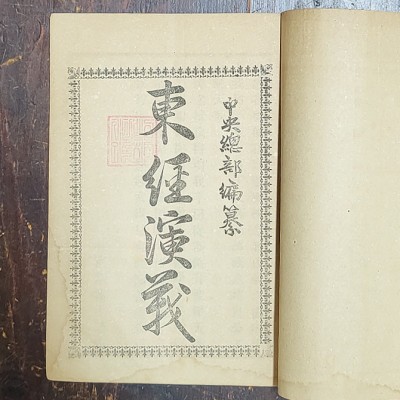 中央總部編纂
東經演義